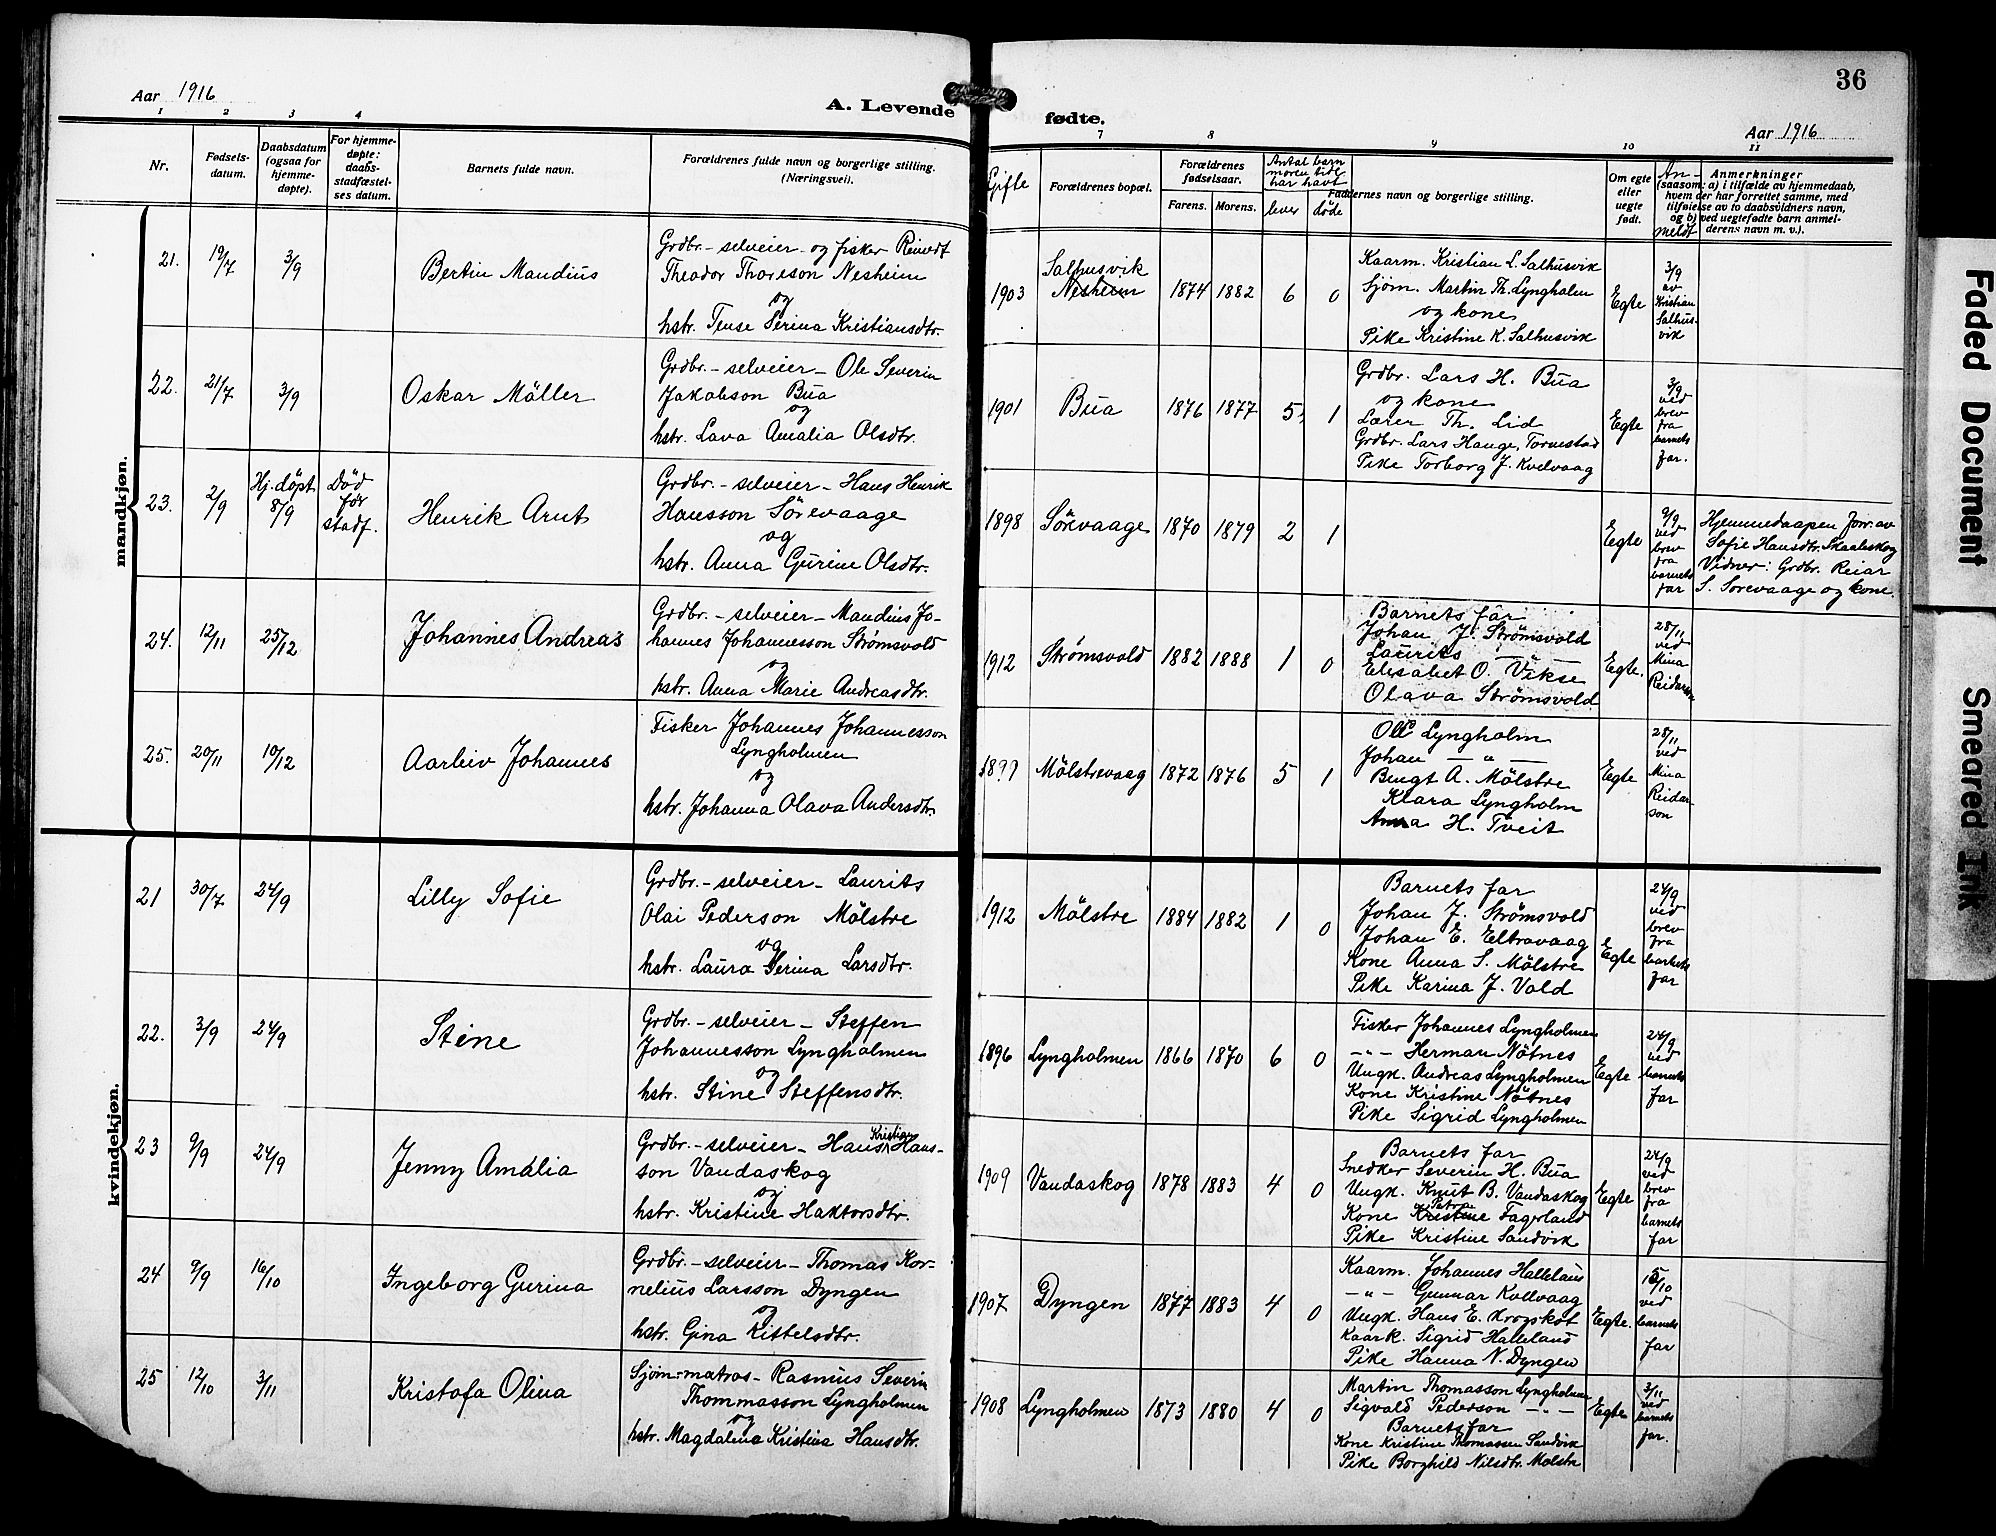 36
Aar 1916
A. Levende
fødte.
Aar 1916
1 2 3 4
7 8 9 10 11
Nr.
Fødsels-
datum.
Daabsdatum
(ogsaa for
hjemme-
døpte).
For hjemme-
døpte:
daabs-
stadfæstel-
ses datum.
Barnets fulde navn.
Forældrenes fulde navn og borgerlige stilling.
(Næringsvei).
Gifte
Forældrenes bopæl.
Forældrenes
fødselsaar.
Farens. Morens.
Antal barn
moren til
har havt
lever døde
Faddernes navn og borgerlige stilling.
Om egte
eller
uegte
født.
An-
meldt
Anmerkninger
(saasom: a) i tilfælde av hjemmedaab,
hvem der har forrettet samme, med
tilføielse av to daabsvidners navn,
og b) ved uegtefødte barn anmel-
derens navn m. v.).
mandkjøn.
21. 19/7 3/9 Bertin Mandius
Grdbr. - selveier - og fisker Reinert
Theodor Thoreson Nesheim
og
hstr. Tense Serina Kristiansdtr.
1903 Salhusvik
Nesheim
1874 1882 6 0
Kaarm. Kristian L. Salhusvik
Sjøm. Martin Th. Lyngholm
og kone
Pike Kristine K. Salhusvik
Egte
3/9
av
Kristian
Salhus-
vik
22. 21/7 3/9 Oskar Möller
Grdbr. - selveier - Ole Severin
Jakobson Bua
og
hstr. Lava Amalia Olsdtr.
1901 Bua 1876 1877 5 1
Grdbr. Lars H. Bua
og kone
Lærer Th. Lid
Grdbr. Lars Hauge, Tornestad
Pike Torborg J. Kvelvaag
Egte
3/9
ved
brev
fra
barnets
far.
23. 2/9 Hj. döpt
8/9
Död
før
stadf.
Henrik Arnt
Grdbr. - selveier - Hans Henrik
Hansson Sörevaage
og
hstr. Anna Gurine Olsdtr.
1898 Sörevaage 1870 1879 2 1
Egte
9/9
ved
brev
fra
barnets
far
Hjemmedaapen forr. av
Sofie Hansdtr. Skaaleskog
Vidner: Grdbr. Reiar
S. Sørevaage og kone.
24. 12/11 25/12 Johannes Andreas
Grdbr. - selveier - Mandius Jo-
hannes Johannesson Strømsvold
og
hstr. Anna Marie Andreasdtr.
1912 Strømsvold 1882 1888 1 0
Barnets far
Johan J. Strømsvold
Laurits — " —
Elisabet O. Vikse
Olava Strømsvold
Egte.
28/11
ved
Mina
Reidarson
25. 20/11 19/12 Aarleiv Johannes
Fisker Johannes Johannesson
Lyngholmen
og
hstr. Johanna Olava Andersdtr.
1899 Mölstrevaag 1872 1876 5 1
Olle Lyngholm
Johan — " —
Bengt A. Mölstre
Klara Lyngholm
Anna H. Tveit
Egte
28/11
ved
Mina
Reidar-
son
kvindekjøn.
21 30/7 24/9 Lilly Sofie
Grdbr. - selveier - Laurits
Olai Pederson Mölstre
og
hstr. Laura Serina Larsdtr.
1912 Mölstre 1884 1882 1 0
Barnets far
Johan J. Strømsvold
Johan E. Eltravaag
Kone Anna S. Mölstre
Pike Karina J. Vold
Egte
24/9
ved
brev
fra
barnets
far
22. 3/9 24/9 Stine
Grdbr. - selveier - Steffen
Johannesson Lyngholmen
og
hstr. Stine Steffensdtr.
1896 Lyngholmen 1866 1870 6 0
Fisker Johannes Lyngholmen
— " — Herman Nötnes
Ungk. Andreas Lyngholmen
Kone Kristine Nötnes
Pike Sigrid Lyngholmen
Egte
24/9
ved
barnets
far
23 9/9 24/9 Jenny Amalia
Grdbr. - selveier - Hans Kristian Hans-
son Vandaskog
og
hstr. Kristine Haktorsdtr.
1909 Vandaskog 1878 1883 4 0
Barnets far
Snedker Severin H. Bua
Ungk. Knut B. Vandaskog
Kone Kristine Fagerland
Pike Kristine Sandvik
Egte
24/9
ved
brev
fra
barnets
far
24 9/9 16/10 Ingeborg Gurina
Grdbr. - selveier - Thomas Kor-
nelius Larsson Dyngen
og
hstr. Gina Kittelsdtr.
1907 Dyngen 1877 1883 4 0
Kaarm. Johannes Halleland
— " — Gunnar Kollvaag
Ungk. Hans E. Krogskot
Kaark. Sigrid Halleland
Pike Hanna N. Dyngen
Egte.
15/10
ved
barnets
far
25 12/10 3/11 Kristofa Olina
Sjøm-matros - Rasmus Severin
Thommasson Lyngholmen
og
hstr. Magdalena Kristina Hansdtr.
1908 Lyngholmen 1873 1880 4 0
Martin Thomasson Lyngholmen
Sigvald Pederson — " —
Barnets far
Kone Kristine Thomassen Sandvik
Pike Borghild Nilsdtr. Mølstre
Egte
3/11
ved
barnets
far.
Faded Document
Smeared Ink